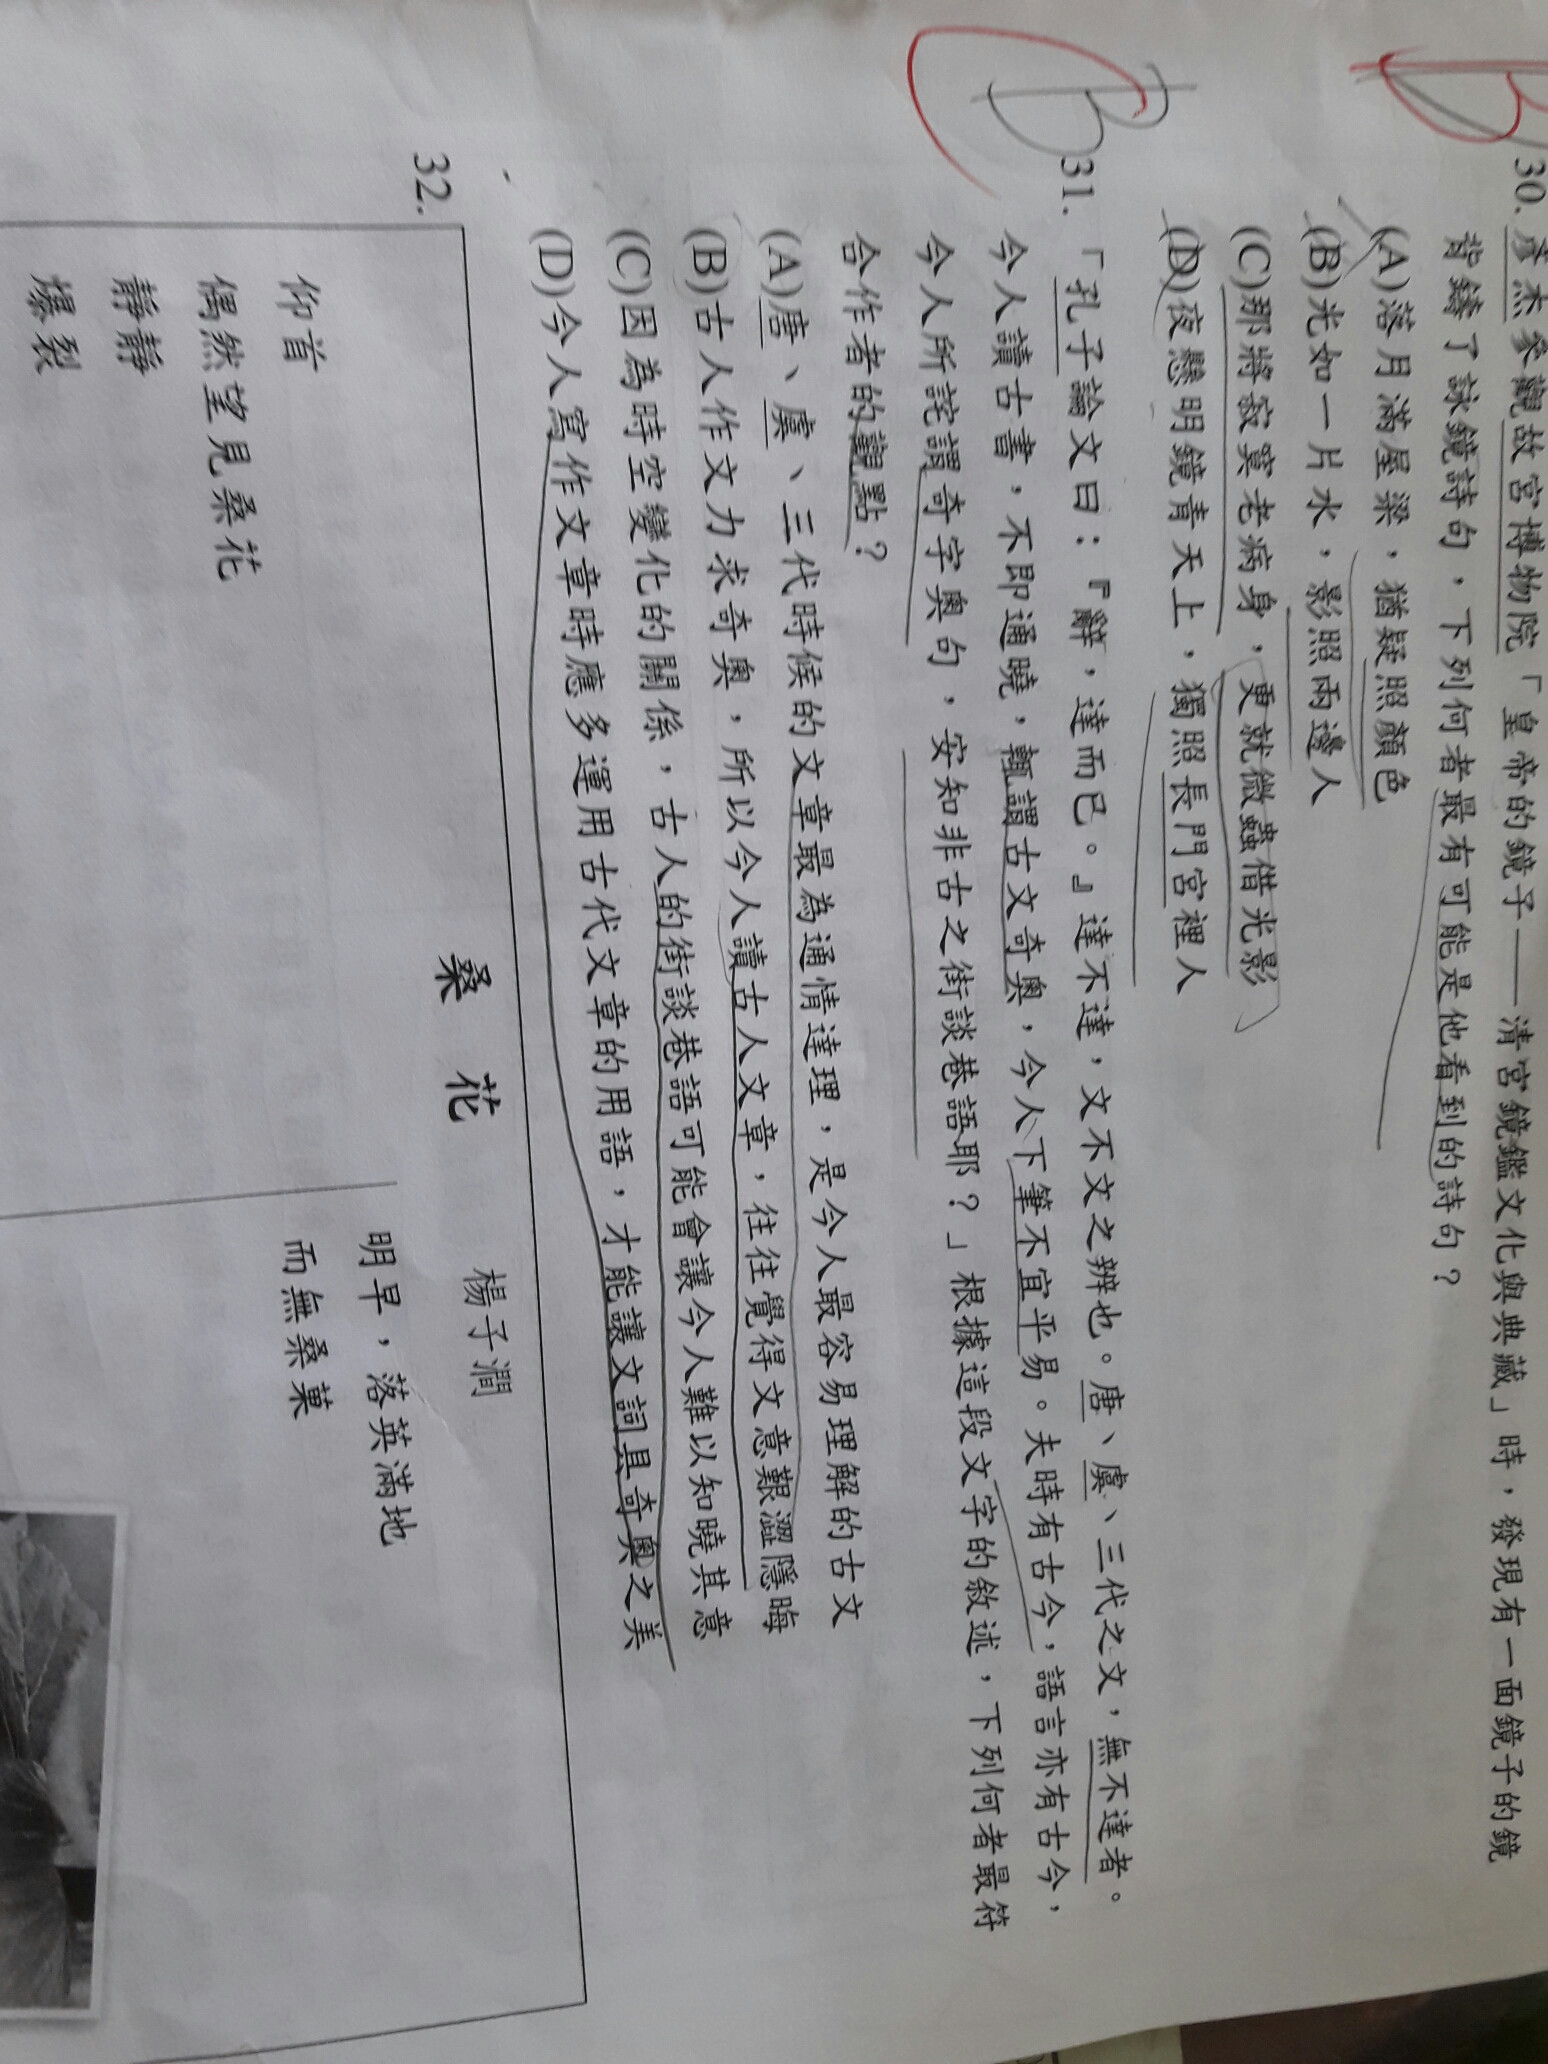 B
30. 彥杰參觀故宮博物院「皇帝的鏡子——清宮鏡鑑文化與典藏」時，發現有一面鏡子的鏡
背鑄了詠鏡詩句，下列何者最有可能是他看到的詩句？
(A)落月滿屋梁，猶疑照顏色
(B)光如一片水，影照兩邊人
(C)那將寂寞老病身，更就微蟲借光影
(D)夜懸明鏡青天上，獨照長門宮裡人
B
C
31. 「孔子論文曰：『辭，達而已。』達不達，文不文之辨也。唐、虞、三代之文，無不達者。
今人讀古書，不即通曉，輒謂古文奇奧，今人下筆不宜平易。夫時有古今，語言亦有古今，
今人所詫謂奇字奧句，安知非古之街談巷語耶？」根據這段文字的敘述，下列何者最符
合作者的觀點？
(A)唐、虞、三代時候的文章最為通情達理，是今人最容易理解的古文
(B)古人作文力求奇奧，所以今人讀古人文章，往往覺得文意艱澀隱晦
(C)因為時空變化的關係，古人的街談巷語可能會讓今人難以知曉其意
(D)今人寫作文章時應多運用古代文章的用語，才能讓文詞具奇奧之美
32.
桑 花 楊子澗
仰首
偶然望見桑花
靜靜
爆裂
明早，落英滿地
而無桑菓